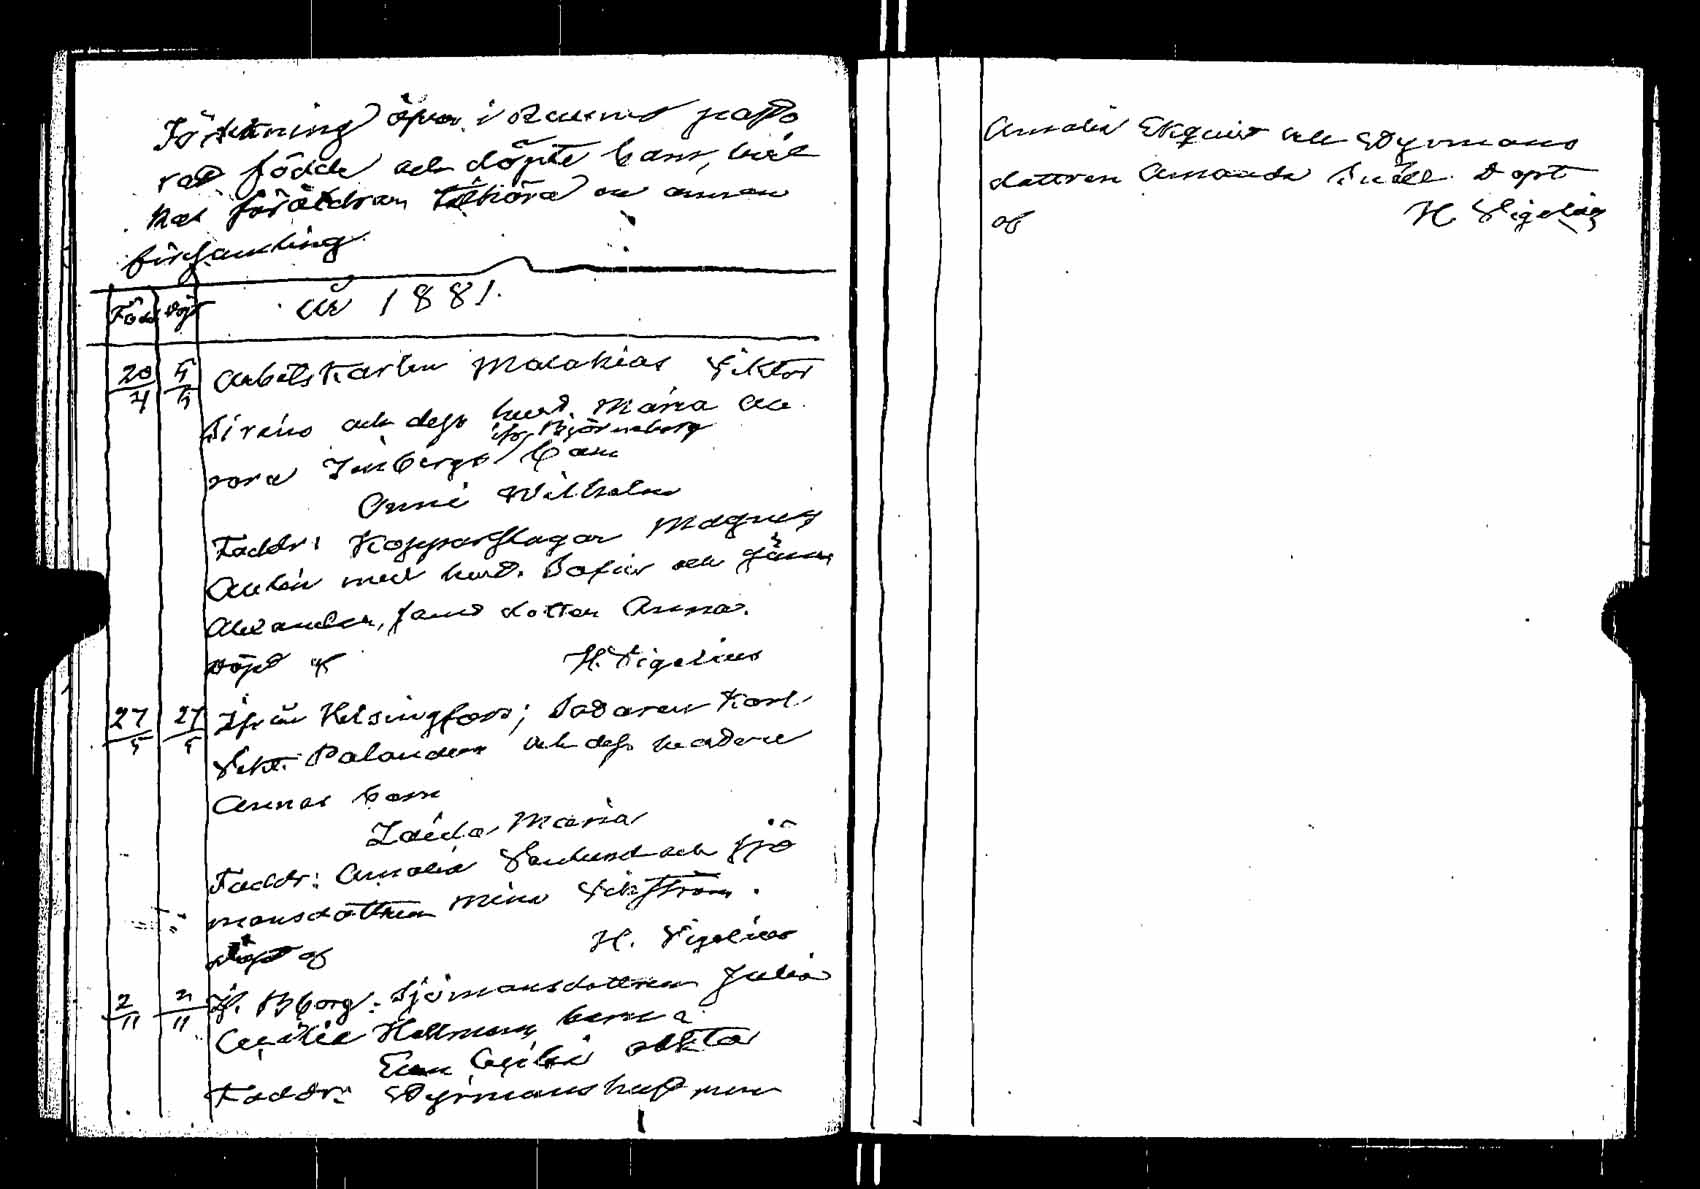 Förteckning öfver i Raumo pasto
rat födde och döpte barn, hvil
kas föräldrar tillhöra en annan
församling.
Född Döpt År 1881.
20/4 5/5 Arbetskarlen Malakias Viktor
Sirens och dess hust. Maria Au
ifr. Björneborg
rora barn
Arvi Wilhelm
Faddr: Kopparslagar Magnus
Aulin med hust. Sofia och
Alexander, samt dotter Anna.
Döpt af H. Vigelius
27/5 27/5 Ifrån Helsingfors; Sadaren Karl
Vikt. Palander och dess
Annas barn
Zaida Maria
Faddr: Amalia och sjö
mansdottren Mina Vikström.
döpt af H. Vigelius
2/11 2/11 If. Bborg: Sjömansdottren Julia
Cecilia Hellmans barn
Cecilia
Faddr: Styrmanshustrun
Amalia Ekquist och Styrmans
dottren Amanda Snäll. Döpt
af H. Vigelius